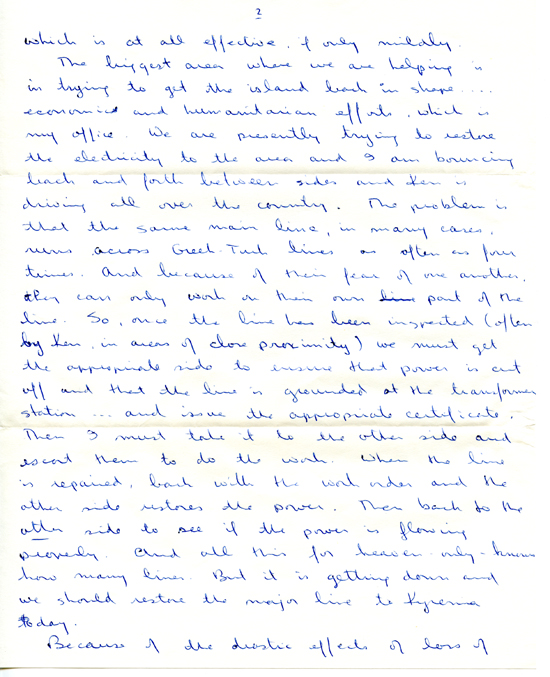 2
which is at all effective, if only mildly.
The biggest area where we are helping is
in trying to get the island back in shape....
economics and humanitarian efforts, which is
my office. We are presently trying to restore
the electricity to the area and I am bouncing
back and forth between sides and Ken is
driving all over the country. The problem is
that the same main line, in many cases,
runs across Greek-Turk lines as often as four
times. And because of their fear of one another,
they can only work on their own line part of the
line. So, once the line has been inspected (often
by Ken, in areas of close proximity) we must get
the appropriate side to ensure that power is cut
off and that the line is grounded at the transformer
station ... and issue the appropriate certificate.
Then I must take it to the other side and
escort them to do the work. When the line
is repaired, back with the work order and the
other side restores the power. Then back to the
other side to see if the power is flowing
properly. And all this for heaven-only-knows
how many lines. But it is getting down and
we should restore the major line to Kyrenia
today.
Because of the drastic effects of loss of